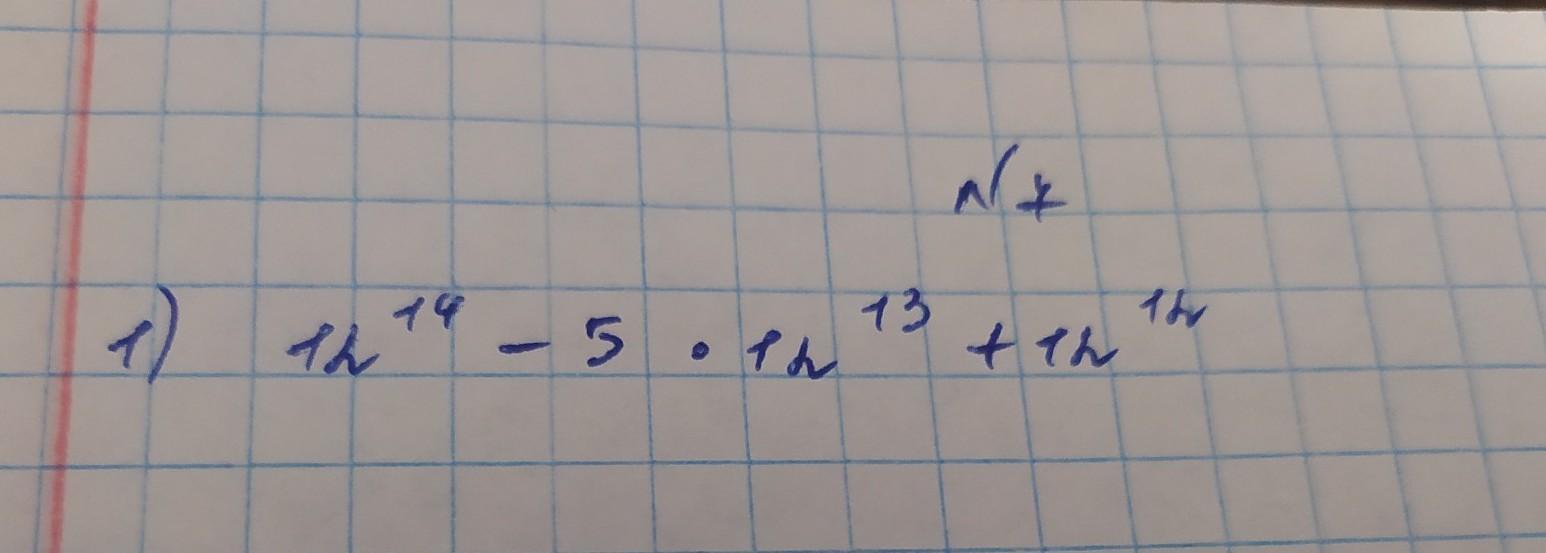 № 7
1) 12¹⁴ - 5 · 12¹³ + 12¹²